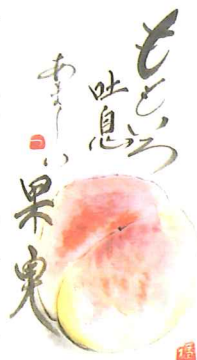 ももいろ
吐息
あまーい
果実